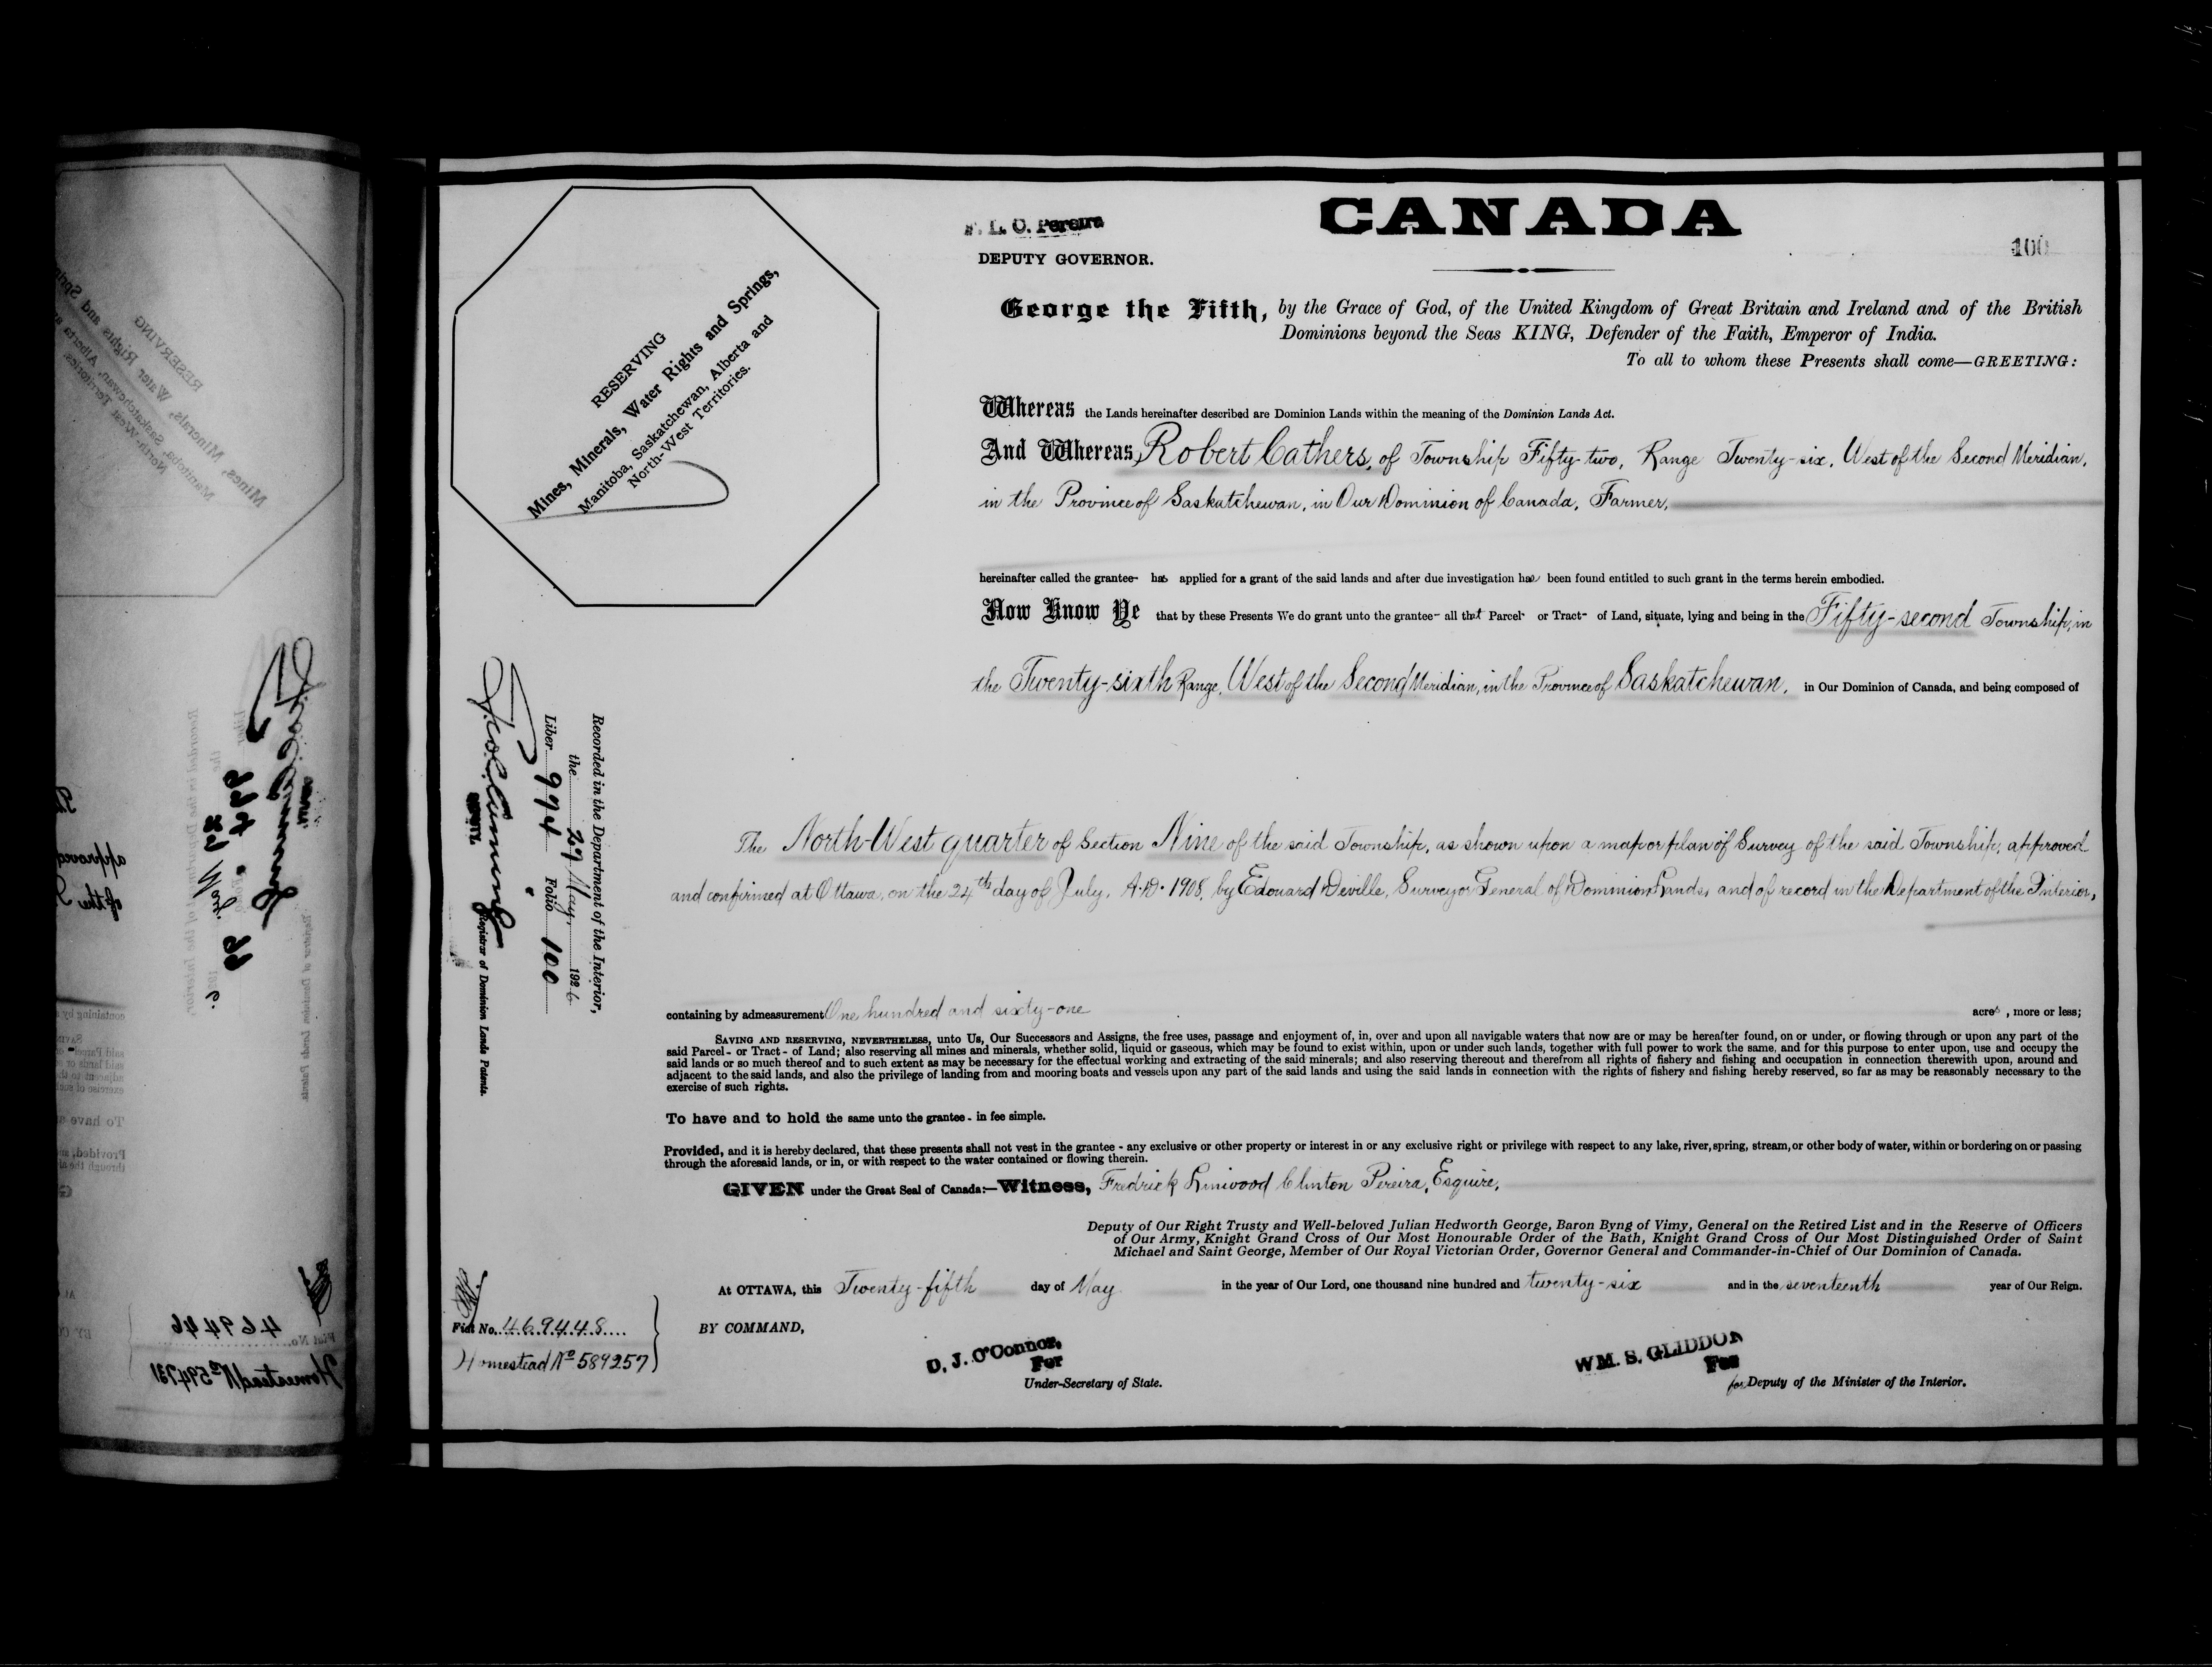 F. L. C. Pereira
DEPUTY GOVERNOR.
CANADA
100
RESERVING
Mines, Minerals, Water Rights and Springs,
Manitoba, Saskatchewan, Alberta and
North-West Territories.
George the Fifth, by the Grace of God, of the United Kingdom of Great Britain and Ireland and of the British
Dominions beyond the Seas KING, Defender of the Faith, Emperor of India.
To all to whom these Presents shall come—GREETING:
Whereas the Lands hereinafter described are Dominion Lands within the meaning of the Dominion Lands Act.
And Whereas Robert Cathers, of Township Fifty-two, Range Twenty-six, West of the Second Meridian,
in the Province of Saskatchewan, in Our Dominion of Canada, Farmer,
hereinafter called the grantee- has applied for a grant of the said lands and after due investigation has been found entitled to such grant in the terms herein embodied.
Now Know Ye that by these Presents We do grant unto the grantee- all that Parcel- or Tract- of Land, situate, lying and being in the Fifty-second Township, in
the Twenty-sixth Range, West of the Second Meridian, in the Province of Saskatchewan, in Our Dominion of Canada, and being composed of
The North-West quarter of Section Nine of the said Township, as shown upon a map or plan of Survey of the said Township, approved
and confirmed at Ottawa, on the 24th day of July, A.D. 1908, by Edouard Deville, Surveyor General of Dominion Lands, and of record in the Department of the Interior,
Recorded in the Department of the Interior,
the 29 May, 1926
Liber 994 Folio 100
DEPUTY Registrar of Dominion Lands Patents.
containing by admeasurement One hundred and sixty-one acres, more or less;
SAVING AND RESERVING, NEVERTHELESS, unto Us, Our Successors and Assigns, the free uses, passage and enjoyment of, in, over and upon all navigable waters that now are or may be hereafter found, on or under, or flowing through or upon any part of the
said Parcel- or Tract- of Land; also reserving all mines and minerals, whether solid, liquid or gaseous, which may be found to exist within, upon or under such lands, together with full power to work the same, and for this purpose to enter upon, use and occupy the
said lands or so much thereof and to such extent as may be necessary for the effectual working and extracting of the said minerals; and also reserving thereout and therefrom all rights of fishery and fishing and occupation in connection therewith upon, around and
adjacent to the said lands, and also the privilege of landing from and mooring boats and vessels upon any part of the said lands and using the said lands in connection with the rights of fishery and fishing hereby reserved, so far as may be reasonably necessary to the
exercise of such rights.
To have and to hold the same unto the grantee - in fee simple.
Provided, and it is hereby declared, that these presents shall not vest in the grantee - any exclusive or other property or interest in or any exclusive right or privilege with respect to any lake, river, spring, stream, or other body of water, within or bordering on or passing
through the aforesaid lands, or in, or with respect to the water contained or flowing therein.
GIVEN under the Great Seal of Canada:—Witness, Fredrick Linwood Clinton Pereira, Esquire,
Deputy of Our Right Trusty and Well-beloved Julian Hedworth George, Baron Byng of Vimy, General on the Retired List and in the Reserve of Officers
of Our Army, Knight Grand Cross of Our Most Honourable Order of the Bath, Knight Grand Cross of Our Most Distinguished Order of Saint
Michael and Saint George, Member of Our Royal Victorian Order, Governor General and Commander-in-Chief of Our Dominion of Canada.
At OTTAWA, this Twenty-fifth day of May in the year of Our Lord, one thousand nine hundred and twenty-six and in the seventeenth year of Our Reign.
Fiat No. 469448
Homestead No 589257
BY COMMAND,
D. J. O'Connor,
For
Under-Secretary of State.
WM. S. GLIDDON
For
for Deputy of the Minister of the Interior.